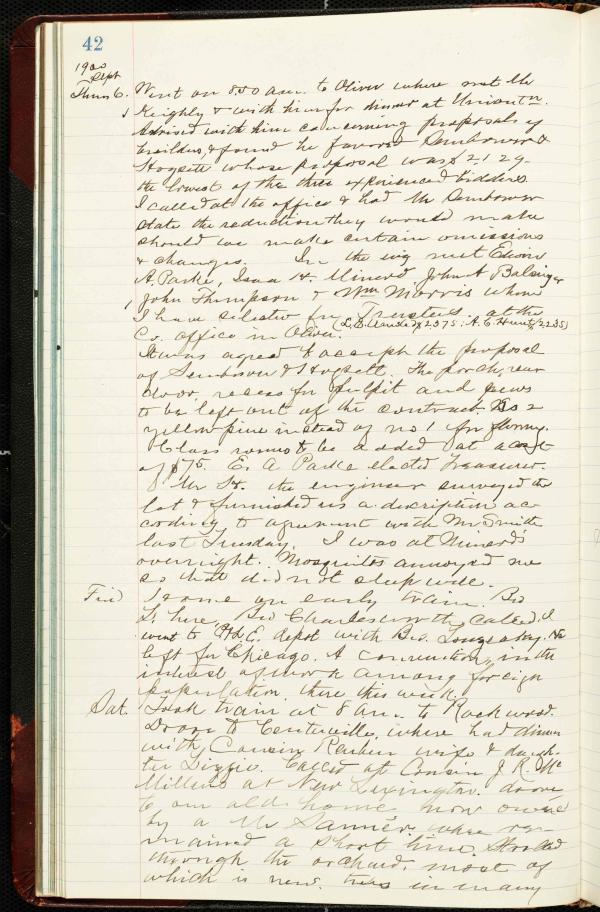 42
1900
Sept
Thurs 6. Went on 8.50 a.m. to Oliver where met Mr
Keighly & with him for dinner at Uniont'n.
Advised with him concerning proposals of
builders, & found he favored Sembower &
Hogsett whose proposal was $2129
the lowest of the three experienced bidders
I called at the office & had Mr Sembower
state the reduction they would make
should we make certain omissions
& changes. In the evg met Edwin
A. Parke, Isaa H. Minerd John A Balsinger
John Thompson & Wm Morris whom
I have selected for Trustees, at the
Co. office in Oliver. $2375; A. C. Hunt $2235)
It was agreed to accept the proposal
of Sembower & Hogsett. The porch, rear
door, recess for pulpit and pews
to be left out of the contract. No 2
yellow pine instead of no 1 for flooring.
Class room to be added at a cost
of $75. E. A. Parke elected Treasurer.
Mr the engineer surveyed the
lot & furnished us a description ac-
cording to agreement with Mr Smith
last Tuesday. I was at Minerd's
overnight. Mosquitos annoyed me
so that did not sleep well.
Frid I come on early train. Bro
here, Bro Charlesworth called. I
went to depot with Bro. He
left for Chicago. A convention in the
interest of work among foreign
population there this week.
Sat. Took train at 8 a.m. to Rockwood.
Drove to Centerville, where had dinner
with Cousin Reuben wife & daugh-
ter Lizzie. Called at Cousin J. R. Mc
Millens at New Lexington. drove
to our old home now owned
by a Mr Sanner. where re-
mained a short time. Strolled
through the orchard, most of
which is new. trees in many